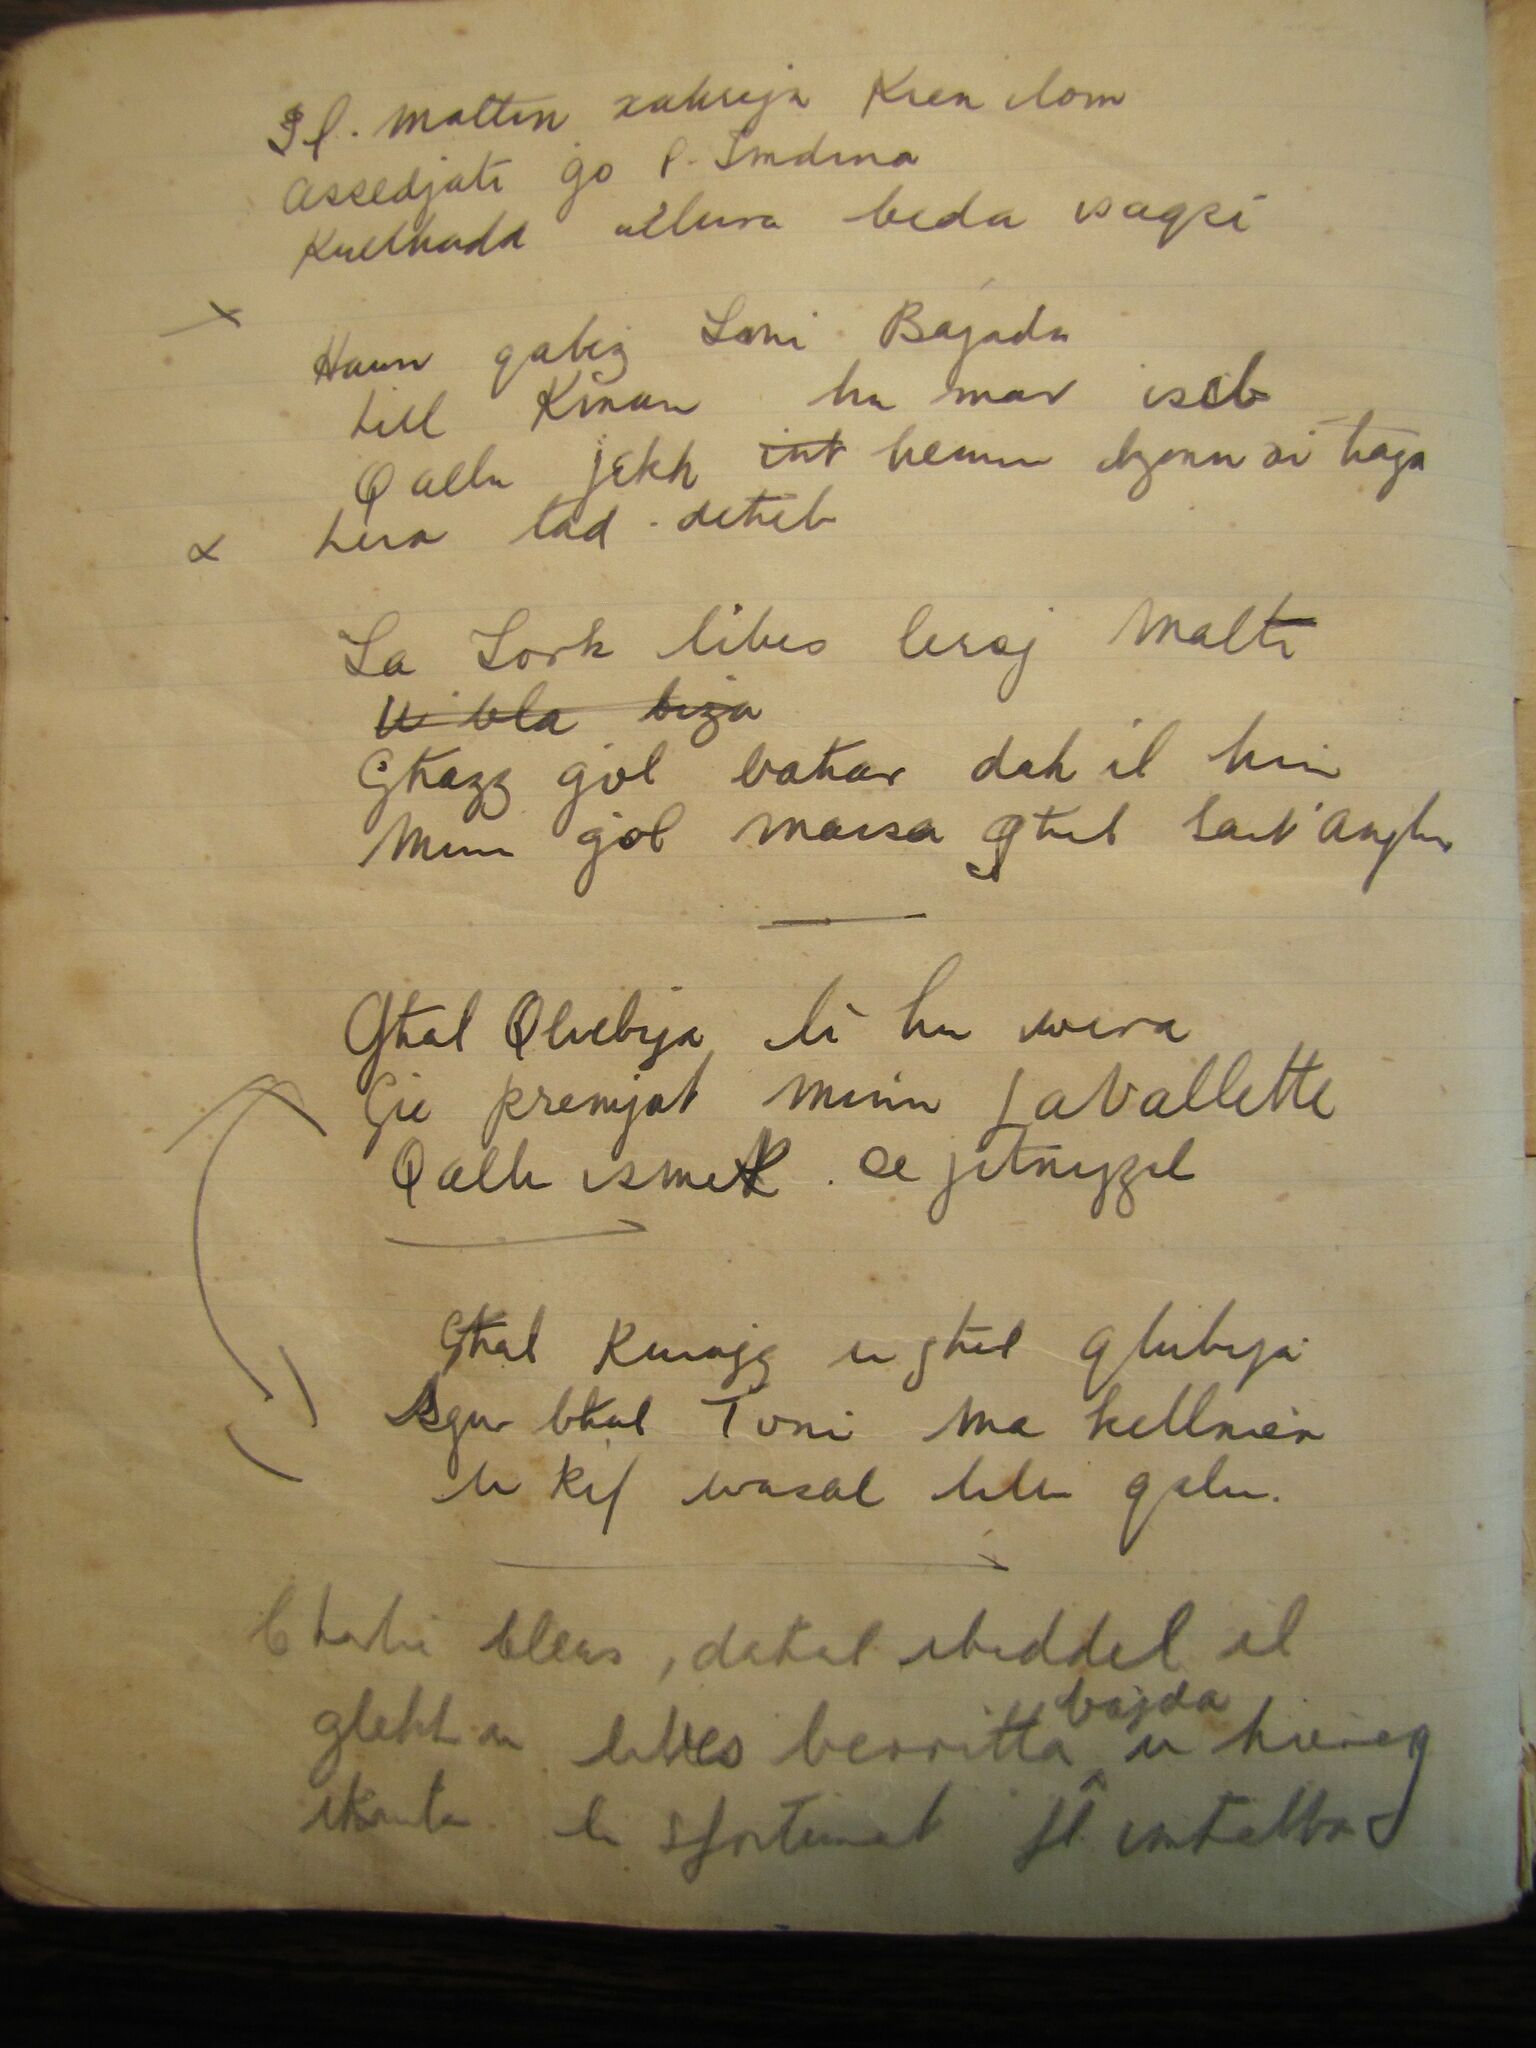 Il. Maltin xahrejn Kien ilom
assedjati ġo l. Imdina
Kulħadd allura beda isaqsi
Hawn qabeż Toni Bajada
lill Kinan hu mar isib
Qallu jekk int hemm bżonn xi ħaġa
hera tad. deheb
La Tork libes ta Malti
U bla biża
Għazz ġol baħar dak il ħin
Minn ġol marsa għal Sant Anglu
Għal Qlubija li hu wera
Ġie premjat minn LaVallette
Qallu ismek se jitniżżel
Għal Kuraġġ u għal qlubija
Bgur bħal Toni ma kellniex
u Kif wasal hu qalu.
Charlie Clews, daħal ibiddel il
libes berritta bajda u ħiereġ
ikanta li sfortunat fl imħabba